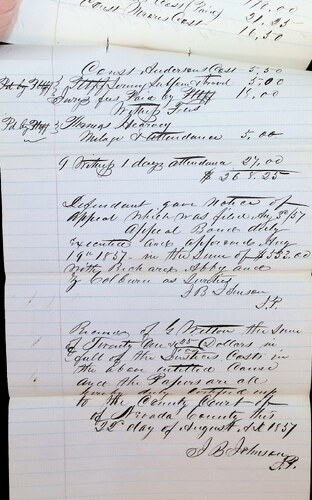 Const Moores Cost 21.25
16,50
Const Andersons Cost 5,50
Pd by Plff Plff Jenny 5.00
Jury fees Paid by Plff 18,00
Witness Fees
Pd by Plff Thomas
Milage & attendance 5,00
9 Witness 1 days attendance 27,00
$ 268.25
Defendant gave Notice of
Appeal which was filed Aug 3d/57
Appeal Bond duly
Executed and approved Aug
19th 1857. in the sum of $552.00
with Richard Abby and
Colburn as Sureties
J B Johnson
J.P.
Received of G Wilton the sum
of Twenty One & 25/100 Dollars in
full of the Justices Costs in
the above entitled Cause
and the Papers are all
duly Certified up
to the County Court of
of Nevada County this
22d day of August A.D 1857
J B Johnson
J.P.